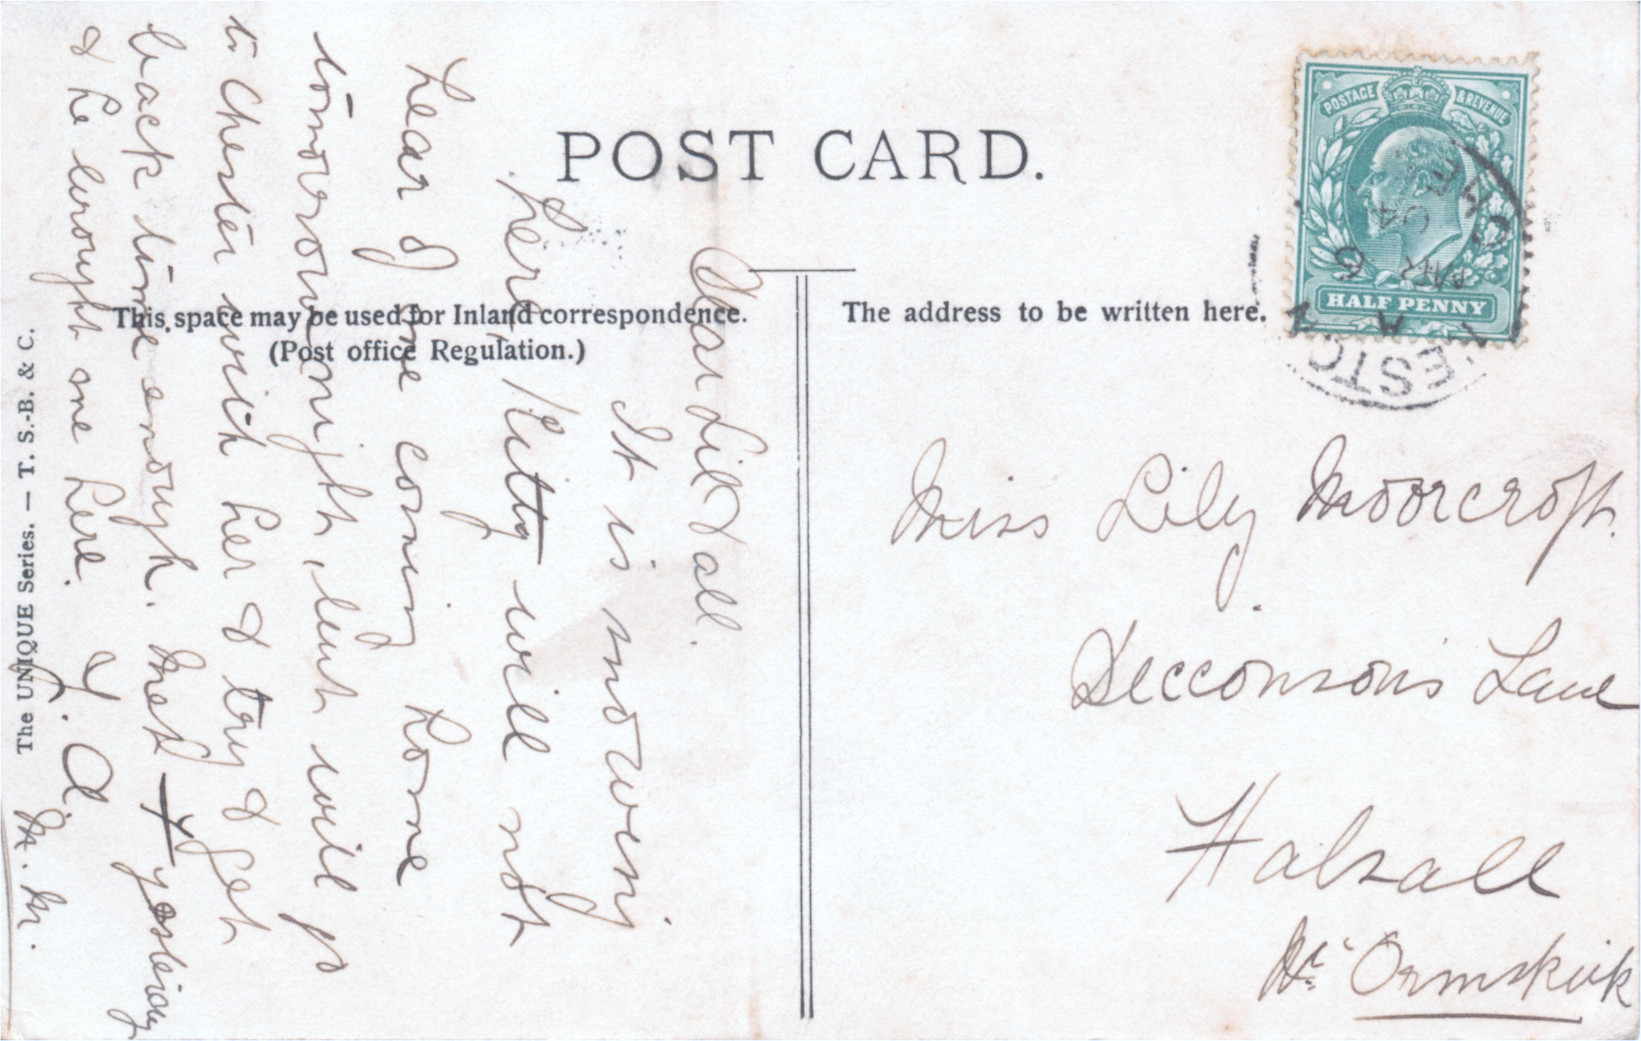 POST CARD.
This space may be used for Inland correspondence.
(Post office Regulation.)
The address to be written here.
The UNIQUE Series. — T. S.-B. & C.
POSTAGE & REVENUE
HALF PENNY
MR 6
04
Dear Lil & all.
It is snowing
here Kitty will not
hear of me coming home
tomorrow night, but will go
to Chester with her & try & get
back time enough. Met + yesterday
& he brought me here. Y. A.
M. M.
Miss Lily Moorcroft.
Decconson's Lane
Halsall
Nr. Ormskirk